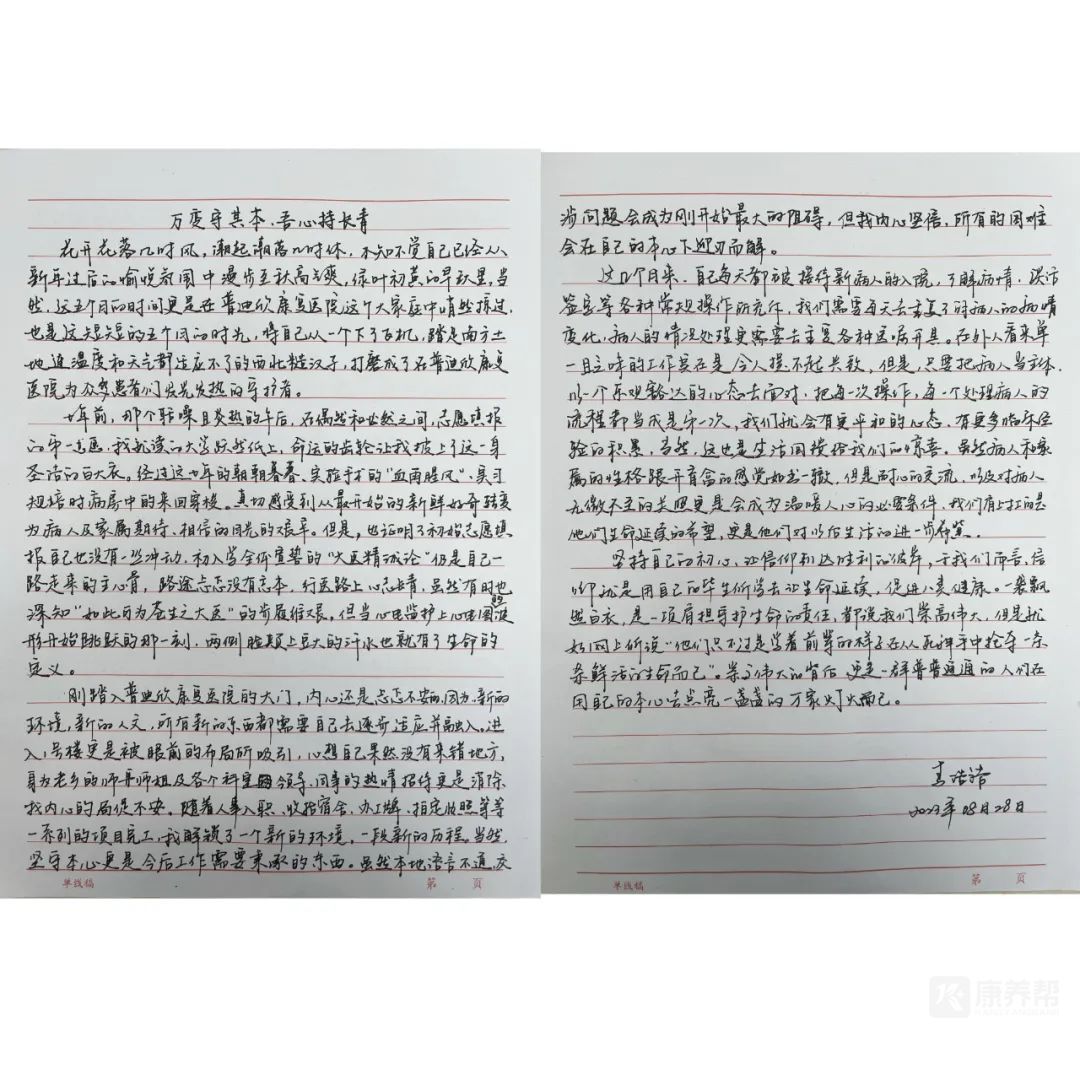 万变守其本、吾心持长青
花开花落几时风，潮起潮落几时休，不知不觉自己已经从
新年过后的愉悦氛围中漫步至秋高气爽，绿叶初黄的早秋里，当
然，这五个月的时间更是在普迪欣康复医院这个大家庭中悄然掠过，
也是这短短的五个月的时光，将自己从一个下了飞机，踏足南方土
地连温度和天气都适应不了的西北糙汉子，打磨成了在普迪欣康复
医院为众多患者们发光发热的守护者。
七年前，那个聒噪且炎热的午后，在偶然和必然之间，志愿填报
的第一志愿，我就读的大学跃然纸上，命运的齿轮让我披上了这一身
圣洁的白大衣。经过这七年的朝朝暮暮、实验手术的“血雨腥风”、见习
规培时病房中的来回穿梭。真切感受到从最开始的新鲜好奇转变
为病人及家属期待、相信的目光的艰辛。但是，也证明了初始志愿填
报自己也没有一丝冲动，初入学全体宣誓的“大医精诚论”仍是自己一
路走来的主心骨，路途忐忑没有忘本，行医路上心志长青，虽然有时也
深知“如此可为苍生之大医”的步履维艰。但当心电监护上心电图波
形开始跳跃的那一刻，两侧脸颊上豆大的汗水也就有了生命的
定义。
刚踏入普迪欣康复医院的大门，内心还是忐忑不安的，因为，新的
环境，新的人文，所有新的东西都需要自己去逐步适应并融入。进
入1号楼更是被眼前的布局所吸引，心想自己果然没有来错地方，
身为老乡的师哥师姐及各个科室领导、同事的热情招待更是消除
我内心的局促不安。随着人事入职、收拾宿舍、办工牌、指定收照等等
一系列的项目完工，我解锁了一个新的环境，一段新的历程。当然，
坚守本心更是今后工作需要秉承的东西。虽然本地语言不通，交
单线稿 第 页
涉问题会成为刚开始最大的阻碍，但我内心坚信，所有的困难
会在自己的本心下迎刃而解。
这几个月来，自己每天都被接待新病人的入院，了解病情，谈话
签字等各种常规操作所充斥，我们需要每天去重复了解病人的病情
变化，病人的情况处理更需要去重复各种医嘱开具。在外人看来单
一且乏味的工作实在是令人提不起兴致，但是，只要把病人当主体，
以一个乐观豁达的心态去面对，把每一次操作，每一个处理病人的
流程都当成是第一次，我们就会有更平和的心态，有更多临床经
验的积累，当然，这也是生活回馈给我们的惊喜。虽然病人和家
属的性格跟开盲盒的感觉如出一辙，但是耐心的交流，以及对病人
无微不至的关照更是会成为温暖人心的必要条件，我们肩上扛的是
他们生命延续的希望，更是他们对以后生活的进一步希冀。
坚持自己的初心，让信仰到达胜利的彼岸，于我们而言，信
仰就是用自己的毕生所学去让生命延续，促进人类健康。一袭飘
然白衣，是一项肩担守护生命的责任，都说我们崇高伟大，但是就
如网上所说“他们只不过是学着前辈的样子在从死神手中抢夺一条
条鲜活的生命而已”。崇高伟大的背后，更是一群普普通通的人们在
用自己的本心去点亮一盏盏的万家灯火而已。
2023年08月28日
单线稿 第 页
康养帮
KANGYANGBANG